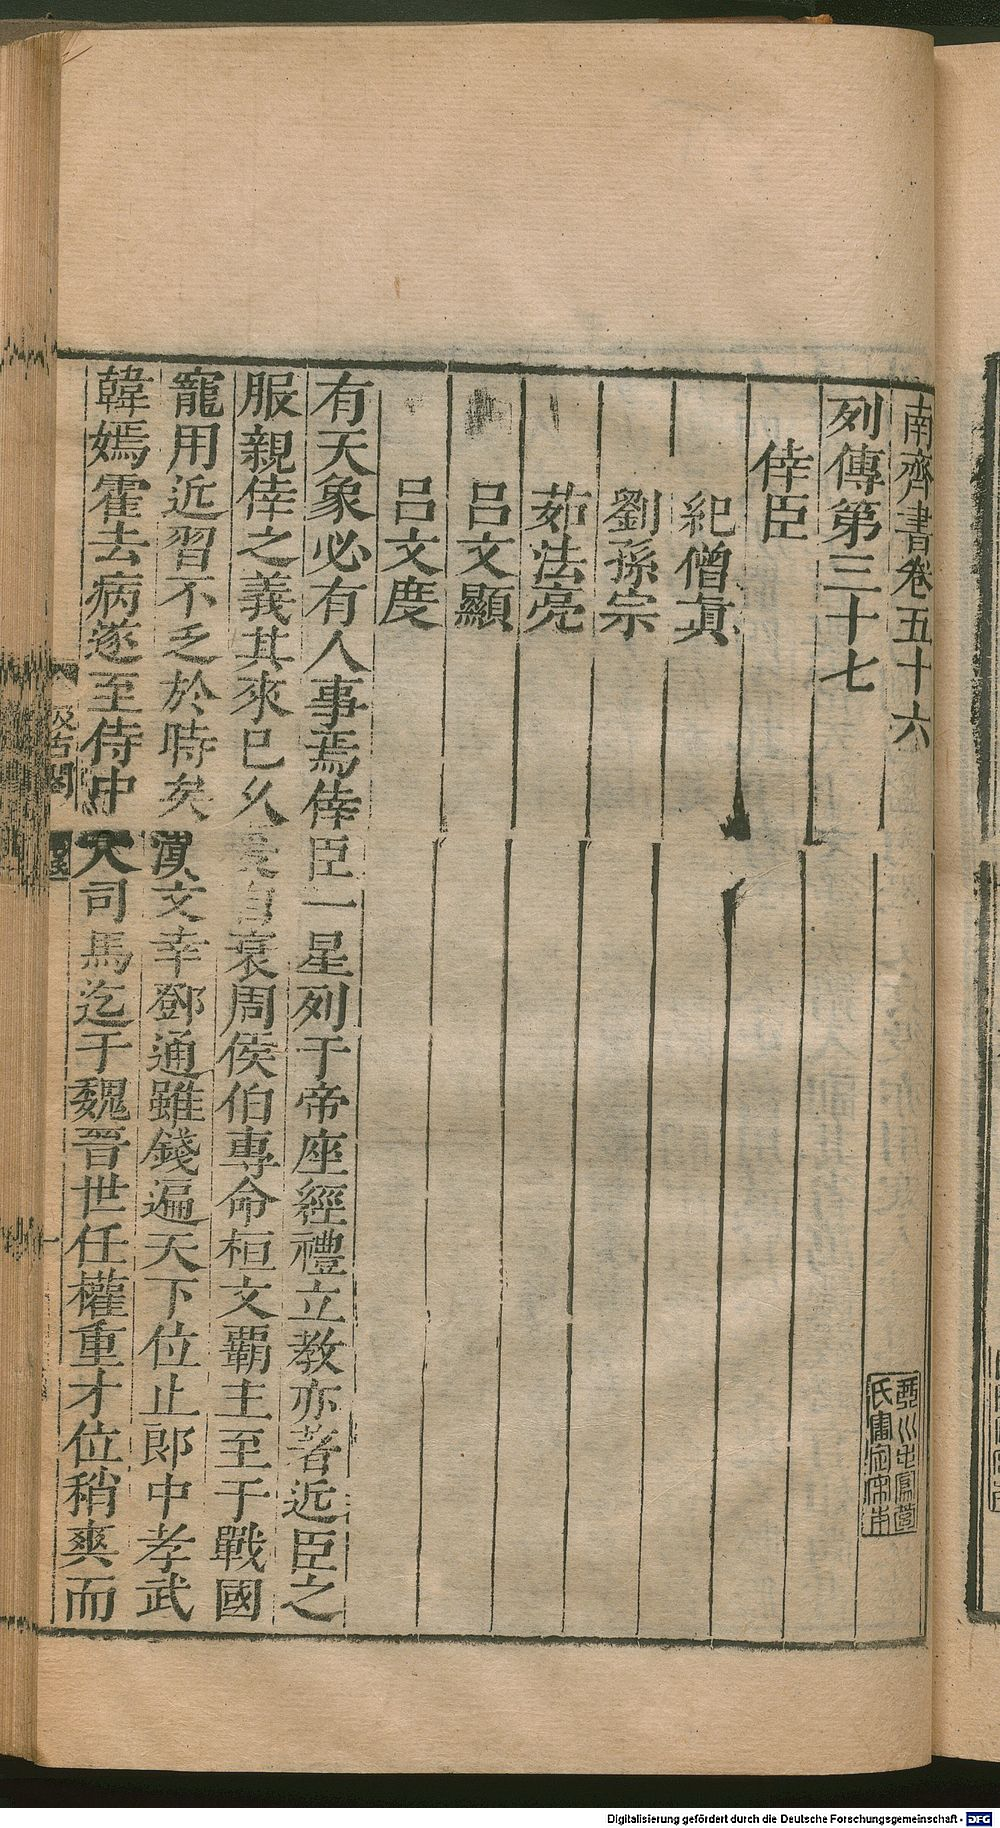 南齊書卷五十六
列傳第三十七
倖臣
紀僧眞
劉孫宗
茹法亮
呂文顯
呂文度
有天象必有人事焉倖臣一星列于帝座經禮立教亦著近臣之
服親倖之義其來已久爰自衰周侯伯專命桓文霸主至于戰國
寵用近習不乏於時矣漢文幸鄧通雖錢遍天下位止郎中孝武
韓嫣霍去病遂至侍中大司馬迄于魏晉世任權重才位稍爽而
汲古閣
Digitalisierung gefördert durch die Deutsche Forschungsgemeinschaft - DFG